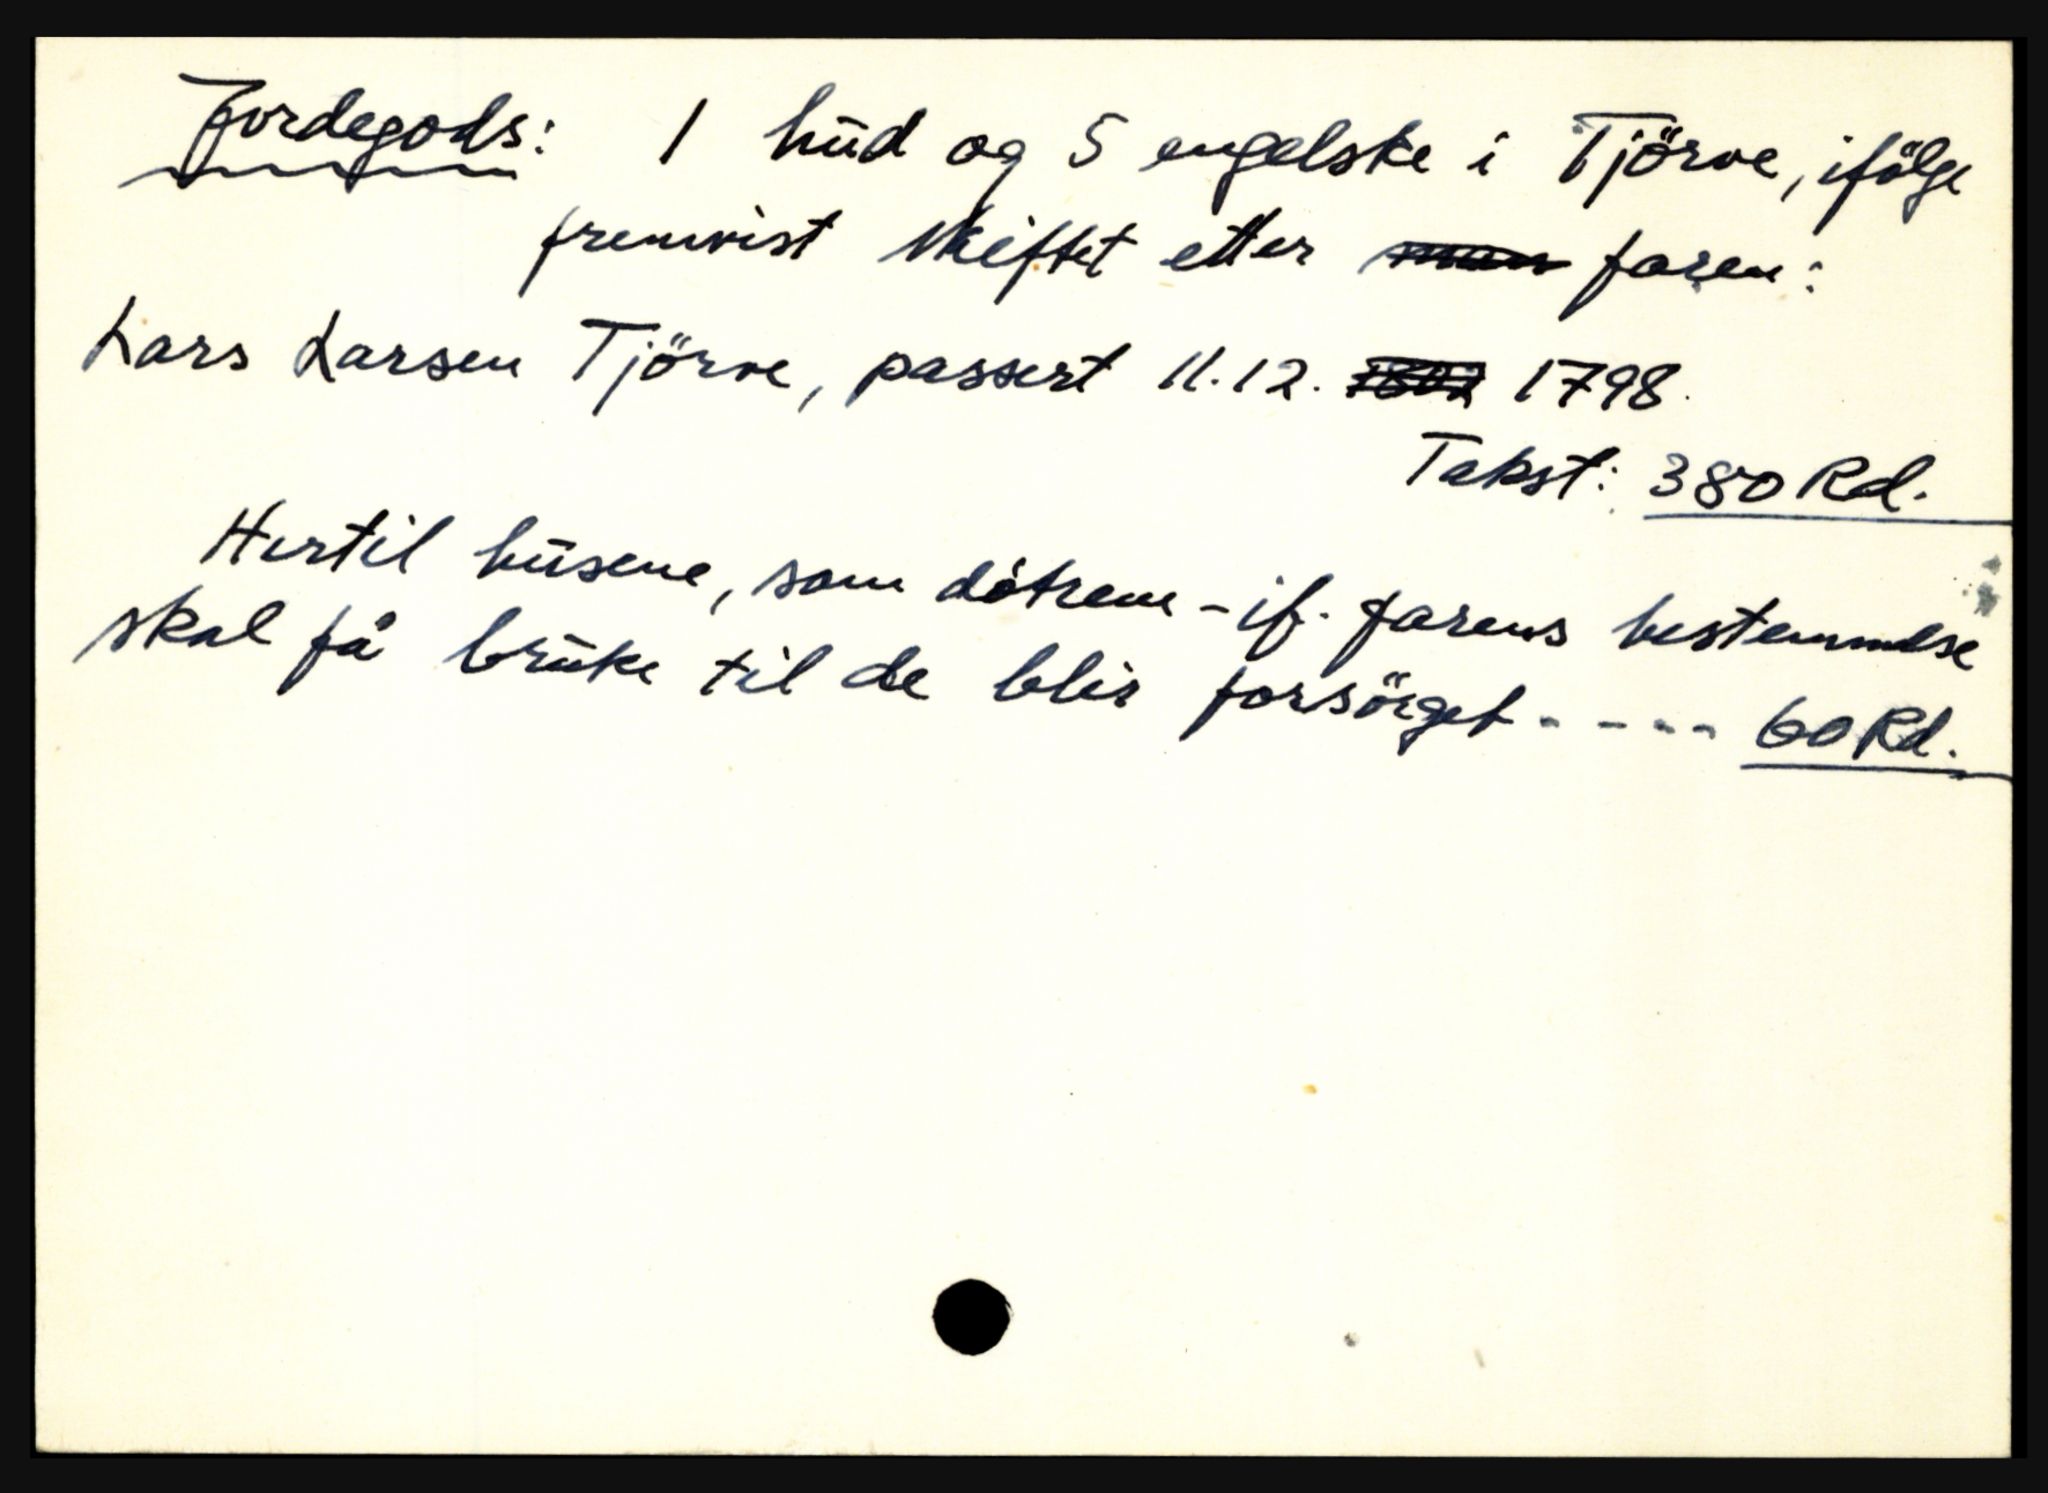 Jordegods: 1 hŭd og 5 engelske i Tjörve, ifölge
fremvist skiftet etter faren:
Lars Larsen Tjörve, passert 11.12. 1798.
Takst: 380 Rd.
Hertil hŭsene, som dötrene - if. farens bestemmelse
skal få brŭke til de blir forsörget - - - - 60 Rd.